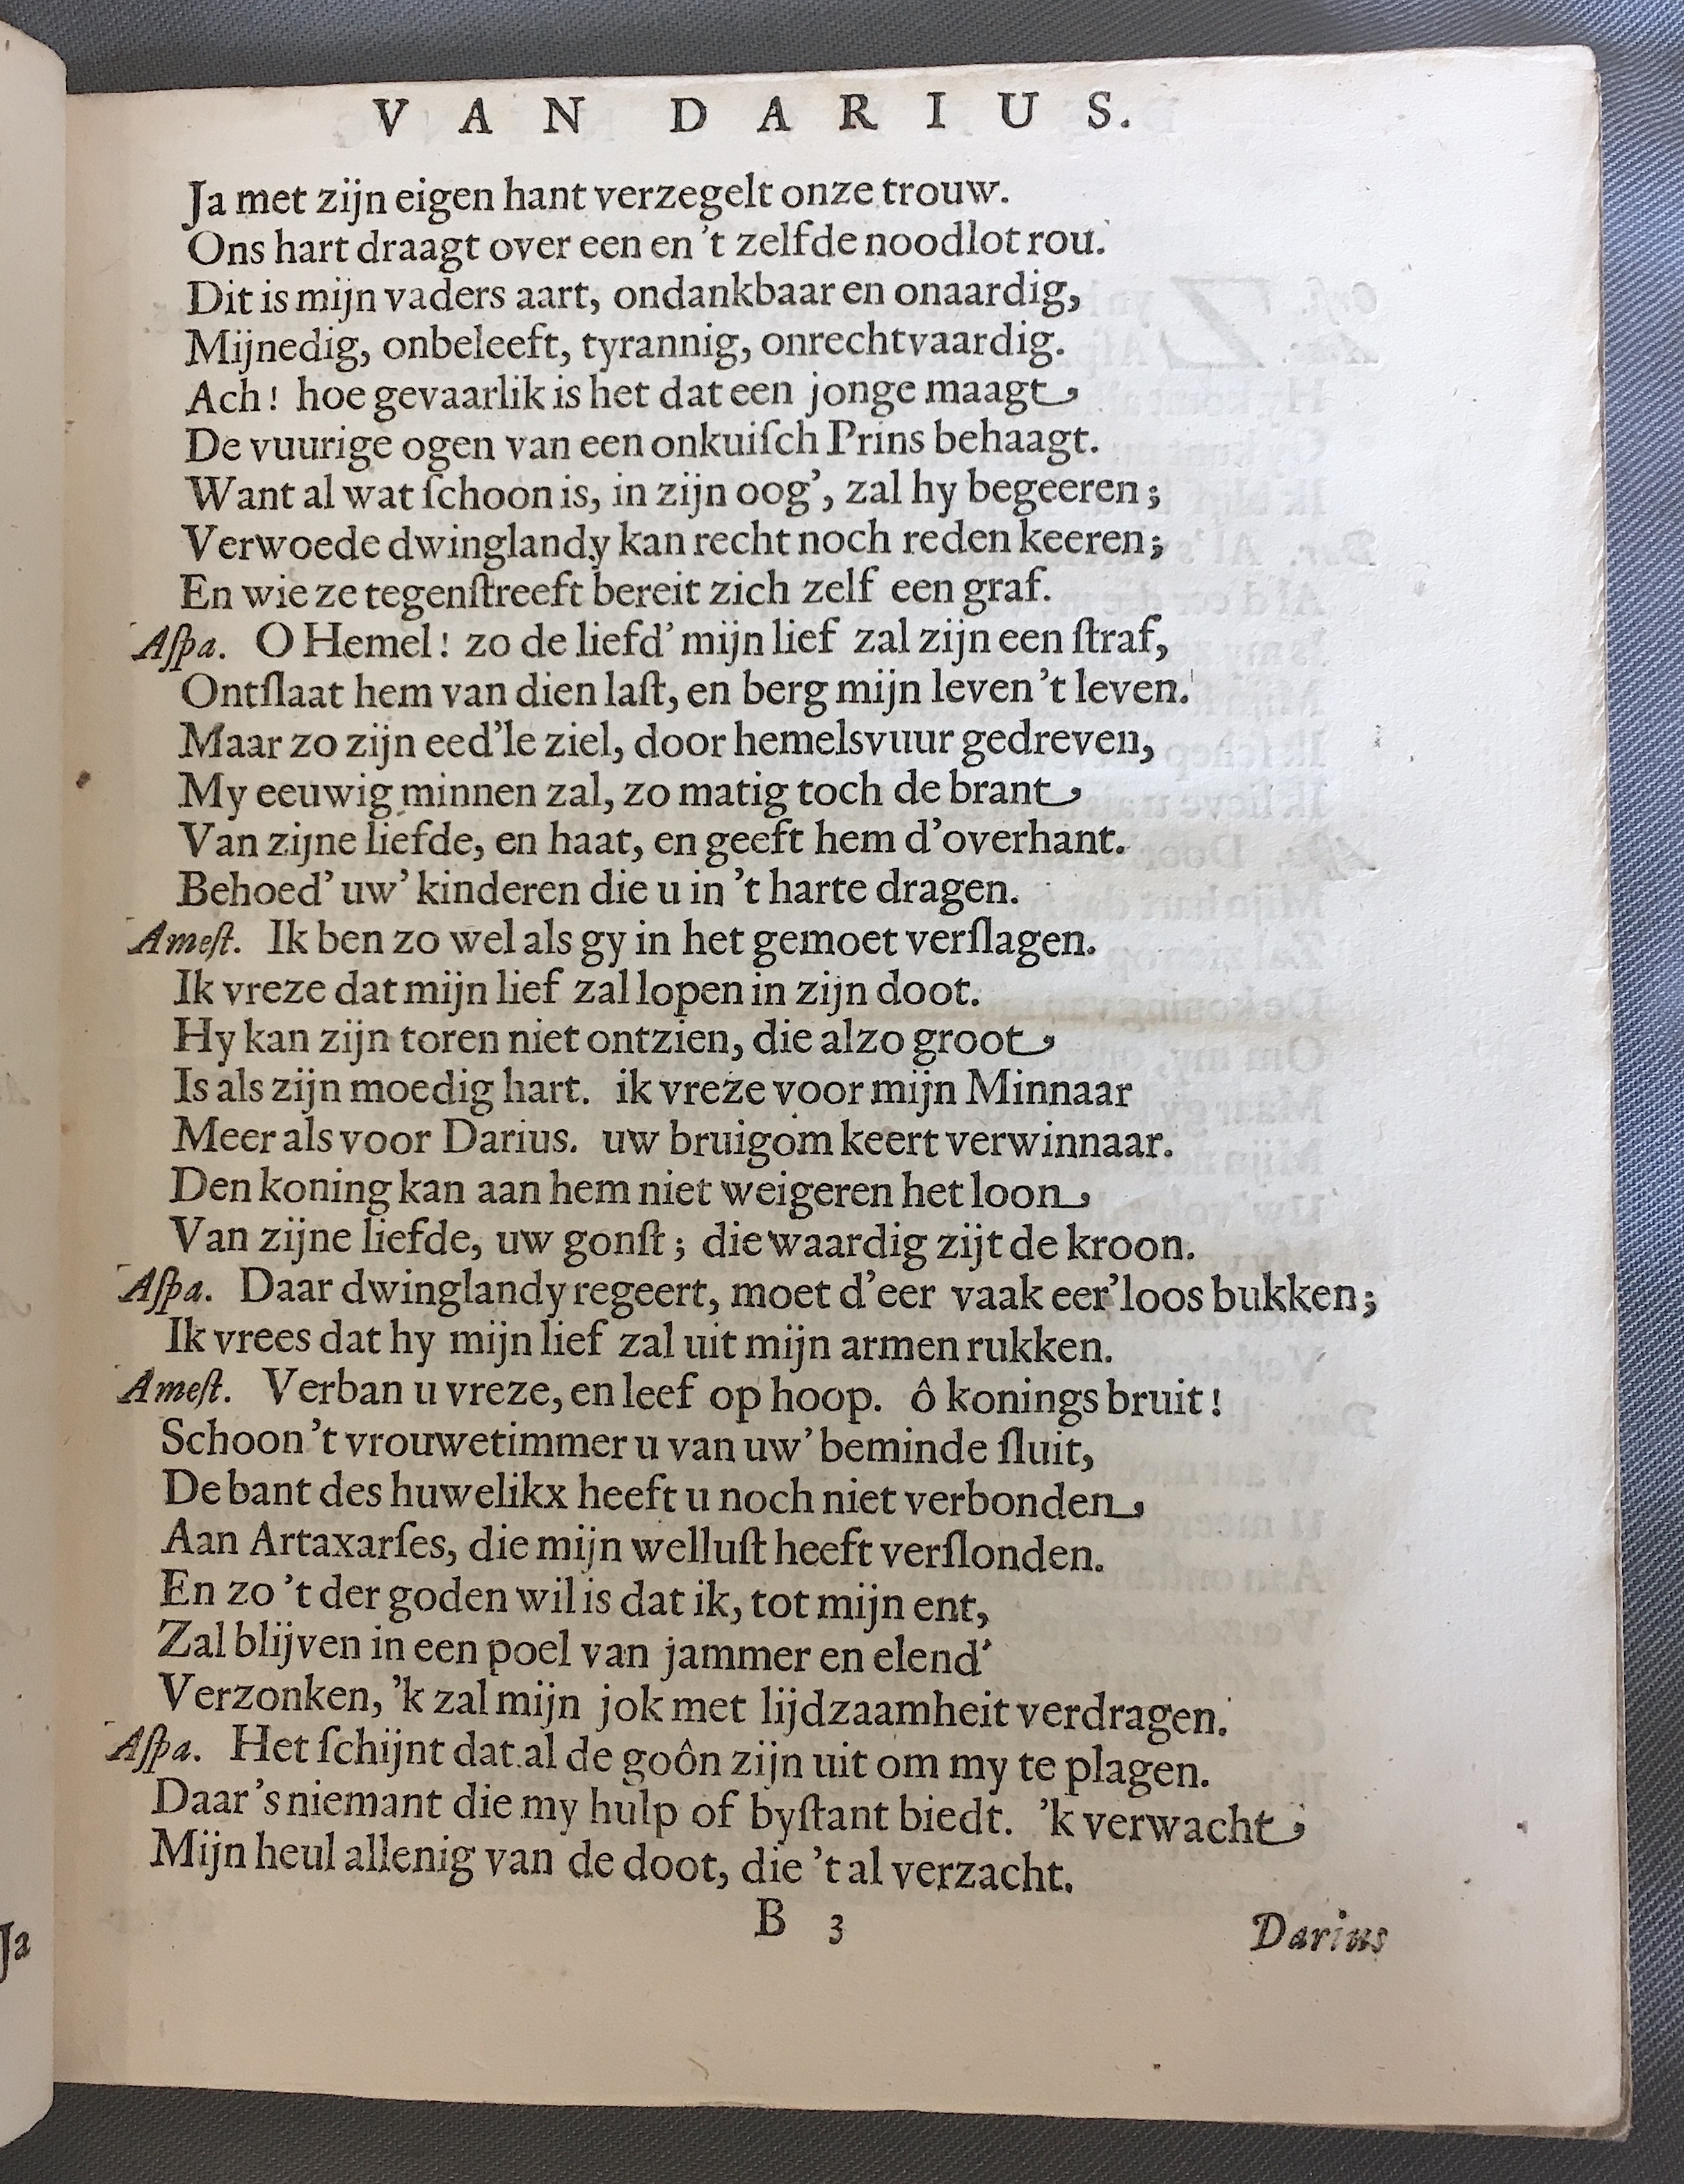 VAN DARIUS.
Ja met zijn eigen hant verzegelt onze trouw.
Ons hart draagt over een en 't zelfde noodlot rou.
Dit is mijn vaders aart, ondankbaar en onaardig,
Mijnedig, onbeleeft, tyrannig, onrechtvaardig.
Ach! hoe gevaarlik is het dat een jonge maagt
De vuurige ogen van een onkuiſch Prins behaagt.
Want al wat ſchoon is, in zijn oog', zal hy begeeren;
Verwoede dwinglandy kan recht noch reden keeren;
En wie ze tegenſtreeft bereit zich zelf een graf.
Aſpa. O Hemel! zo de liefd' mijn lief zal zijn een ſtraf,
Ontſlaat hem van dien laſt, en berg mijn leven 't leven.
Maar zo zijn eed'le ziel, door hemelsvuur gedreven,
My eeuwig minnen zal, zo matig toch de brant
Van zijne liefde, en haat, en geeft hem d'overhant.
Behoed' uw' kinderen die u in 't harte dragen.
Ameſt. Ik ben zo wel als gy in het gemoet verſlagen.
Ik vreze dat mijn lief zal lopen in zijn doot.
Hy kan zijn toren niet ontzien, die alzo groot
Is als zijn moedig hart. ik vreze voor mijn Minnaar
Meer als voor Darius. uw bruigom keert verwinnaar.
Den koning kan aan hem niet weigeren het loon
Van zijne liefde, uw gonſt; die waardig zijt de kroon.
Aſpa. Daar dwinglandy regeert, moet d'eer vaak eer'loos bukken;
Ik vrees dat hy mijn lief zal uit mijn armen rukken.
Ameſt. Verban u vreze, en leef op hoop. ô konings bruit!
Schoon 't vrouwetimmer u van uw' beminde ſluit,
De bant des huwelikx heeft u noch niet verbonden
Aan Artaxarſes, die mijn welluſt heeft verſlonden.
En zo 't der goden wil is dat ik, tot mijn ent,
Zal blijven in een poel van jammer en elend'
Verzonken, 'k zal mijn jok met lijdzaamheit verdragen.
Aſpa. Het ſchijnt dat al de goôn zijn uit om my te plagen.
Daar 's niemant die my hulp of byſtant biedt. 'k verwacht
Mijn heul allenig van de doot, die 't al verzacht.
B 3
Darius
Ja